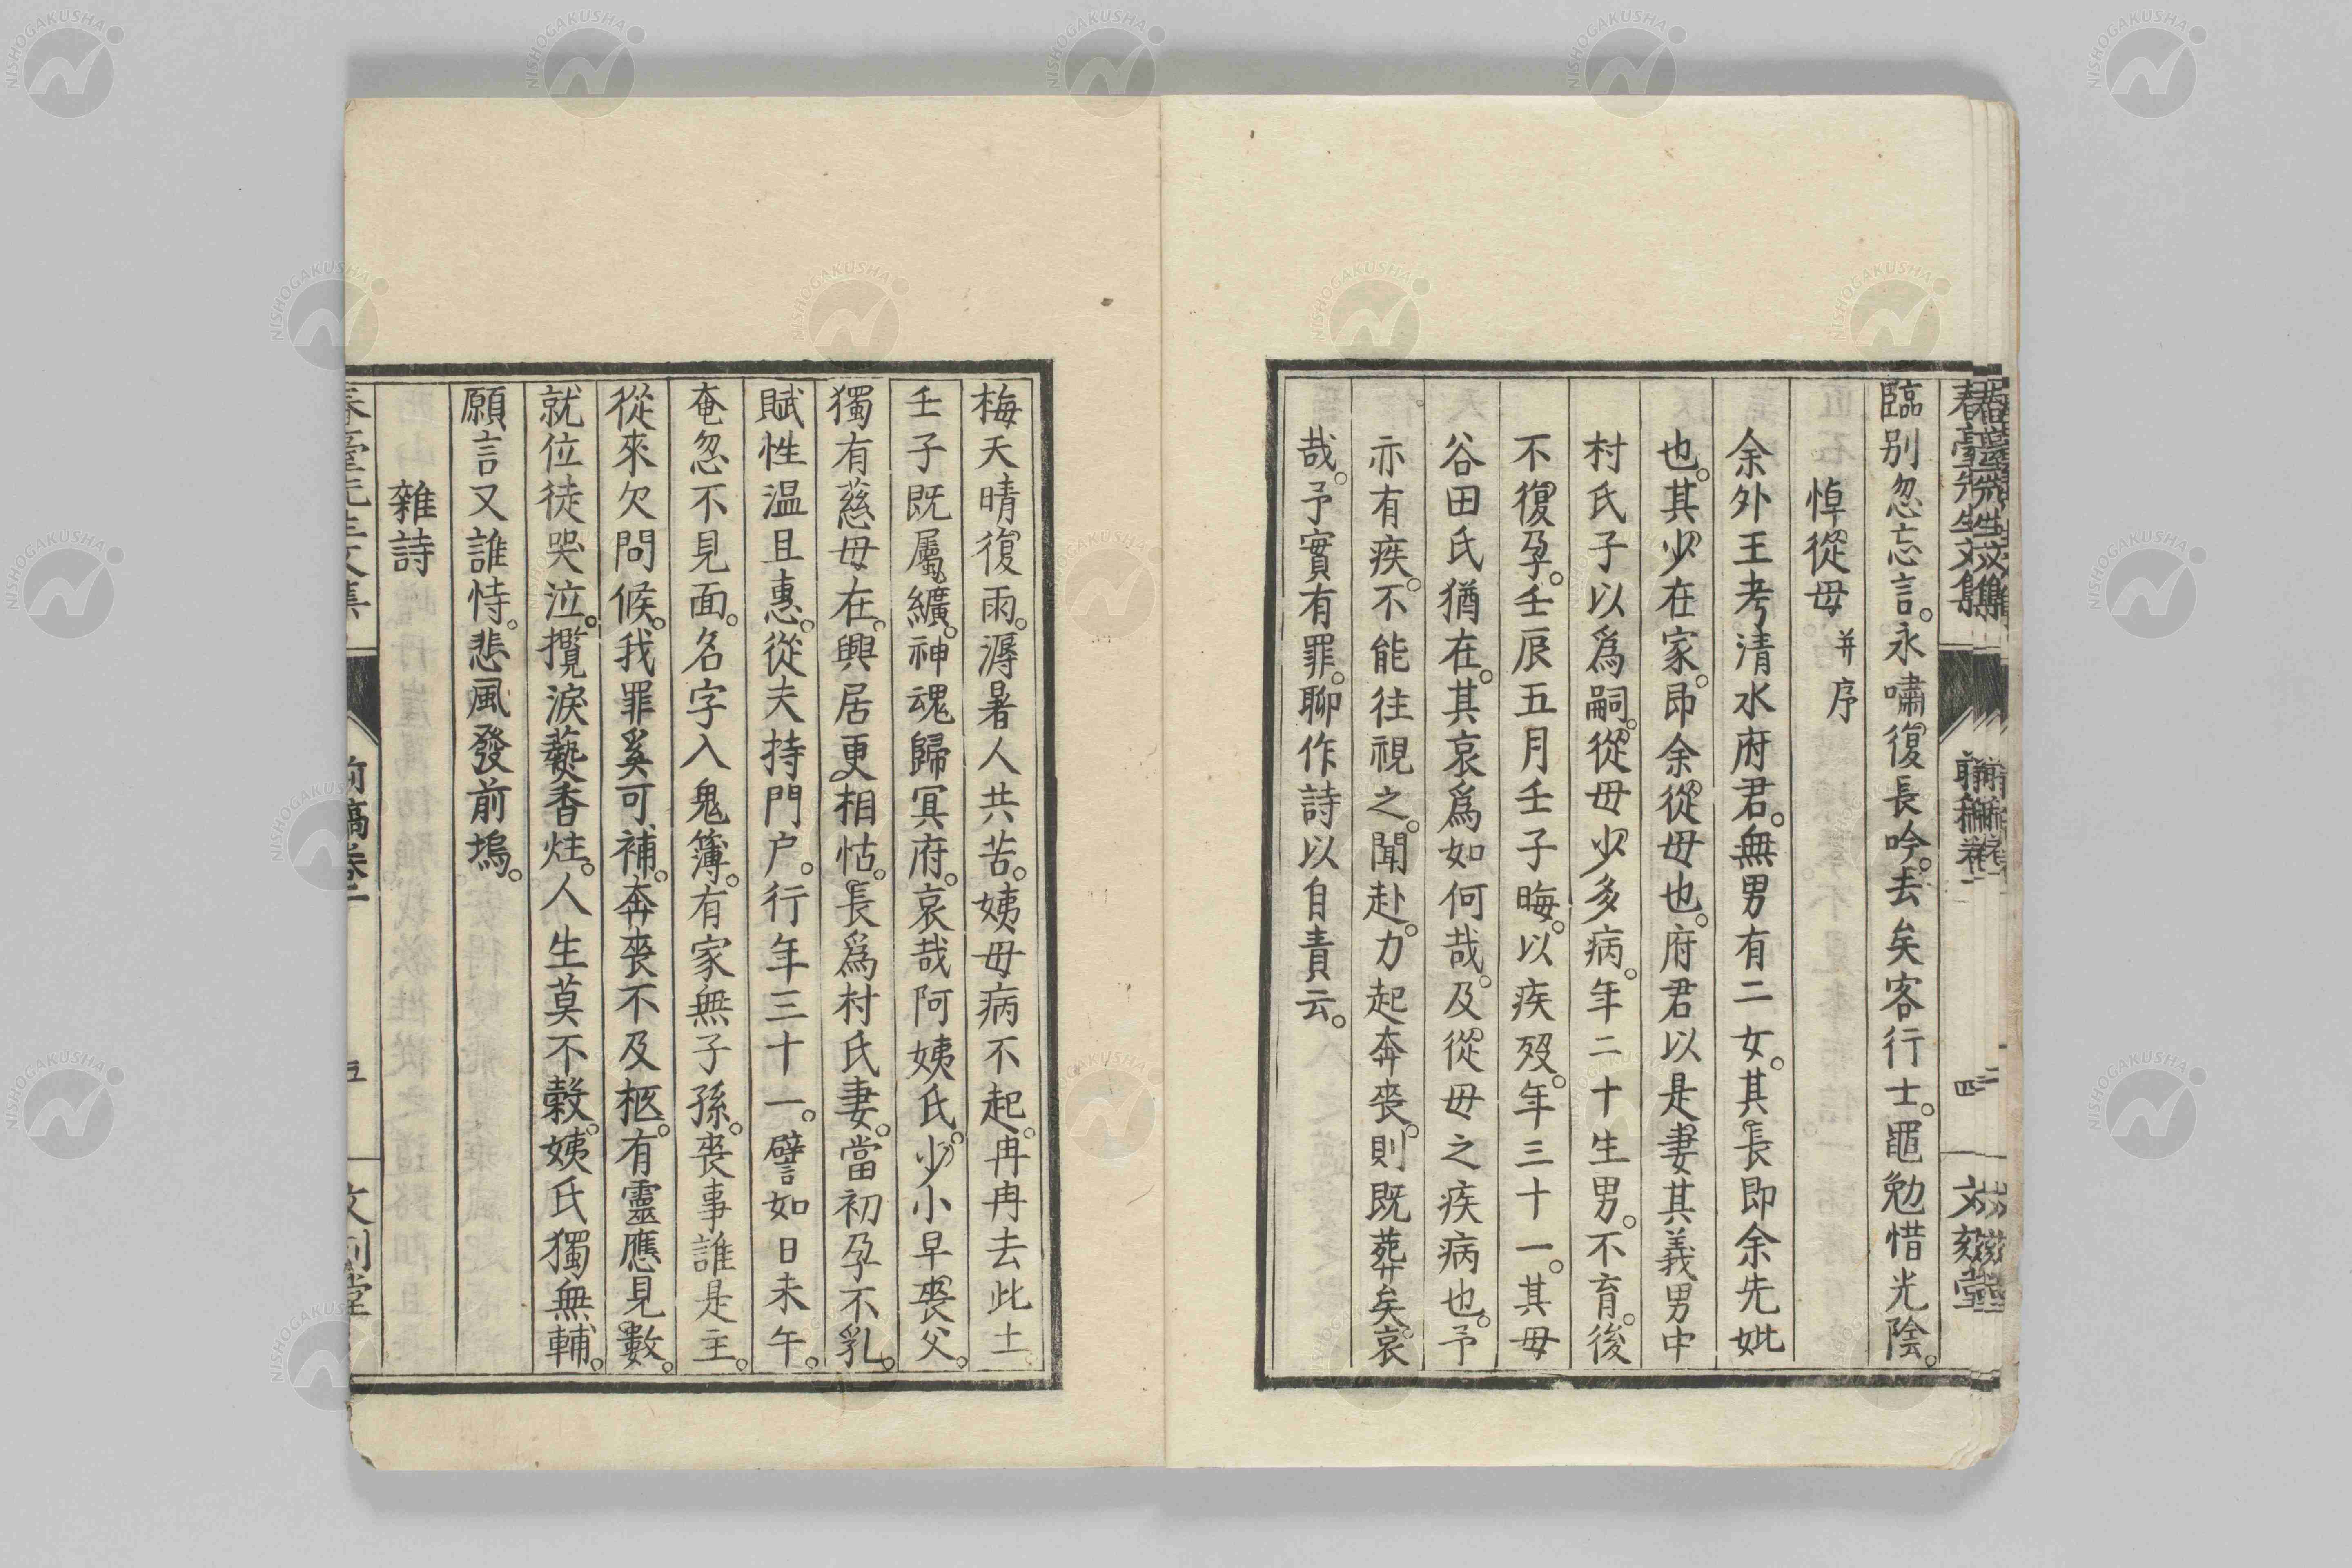 春臺先生文集 前稿卷二 四 文刻堂
臨别忽忘言。永嘯復長吟。去矣客行士。黽勉惜光陰。
悼從母 并序
余外王考清水府君。無男有二女。其長即余先妣
也。其少在家。即余從母也。府君以是妻其義男中
村氏子以爲嗣。從母少多病。年二十生男。不育。後
不復孕。壬辰五月壬子晦。以疾歿。年三十一。其母
谷田氏猶在。其哀爲如何哉。及從母之疾病也。予
亦有疾。不能往視之。聞赴。力起奔喪。則既葬矣。哀
哉。予實有罪。聊作詩以自責云。
梅天晴復雨。溽暑人共苦。姨母病不起。冉冉去此土。
壬子既屬纊。神魂歸冥府。哀哉阿姨氏。少小早喪父。
獨有慈母在。興居更相怙。長爲村氏妻。當初孕不乳。
賦性温且惠。從夫持門户。行年三十一。譬如日未午。
奄忽不見面。名字入鬼簿。有家無子孫。喪事誰是主。
從來欠問候。我罪奚可補。奔喪不及柩。有靈應見數。
就位徒哭泣。攬淚爇香炷。人生莫不穀。姨氏獨無輔。
願言又誰恃。悲風發前塢。
雜詩
春臺先生文集 前稿卷二 五 文刻堂